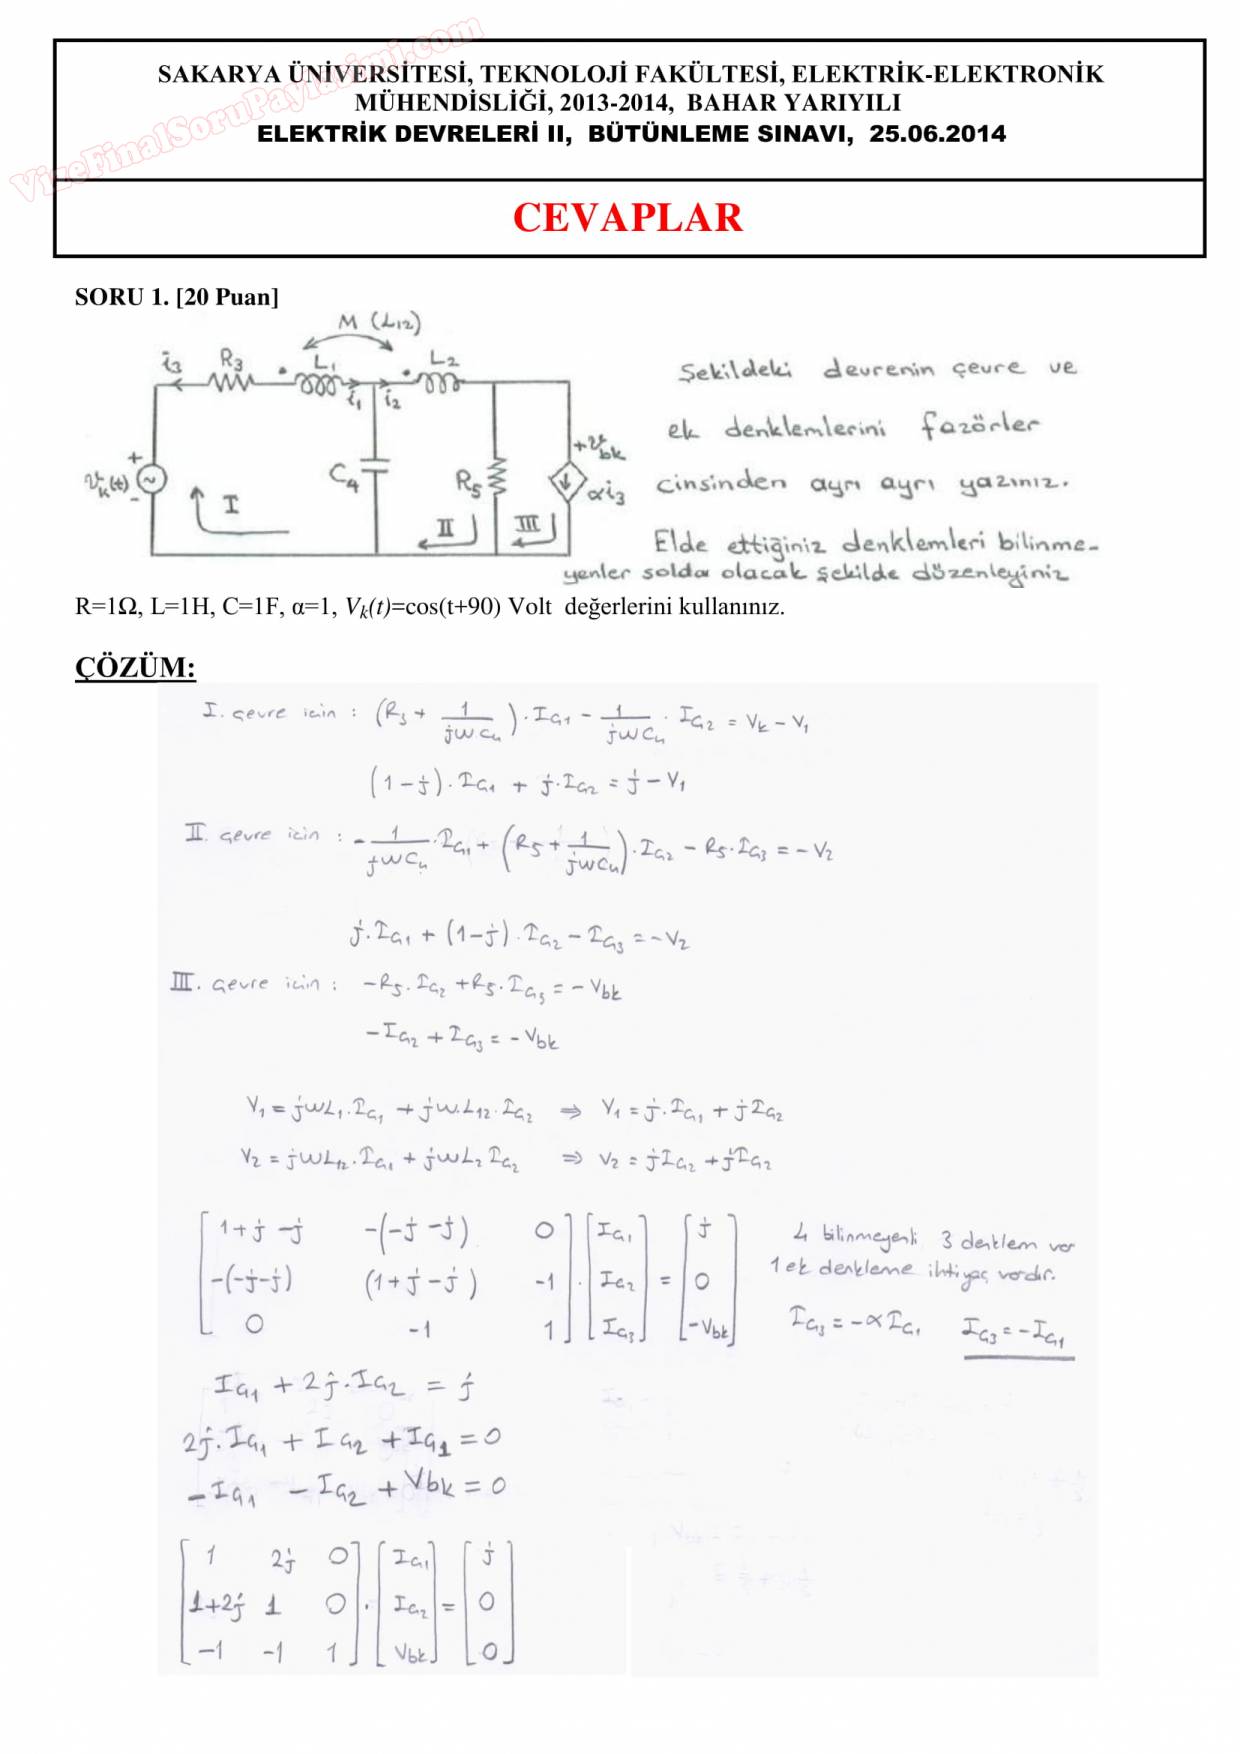 VizeFinalSoruPaylasimi.com
SAKARYA ÜNİVERSİTESİ, TEKNOLOJİ FAKÜLTESİ, ELEKTRİK-ELEKTRONİK
MÜHENDİSLİĞİ, 2013-2014, BAHAR YARIYILI
ELEKTRİK DEVRELERİ II, BÜTÜNLEME SINAVI, 25.06.2014
CEVAPLAR
SORU 1. [20 Puan]
M (L12)
i3 R3 L1 L2
i1 i2
+ Vk(t) - I C4 R5 II III +Vbk αi3
Şekildeki devrenin çevre ve
ek denklemlerini fazörler
cinsinden ayrı ayrı yazınız.
Elde ettiğiniz denklemleri bilinme-
yenler solda olacak şekilde düzenleyiniz
R=1Ω, L=1H, C=1F, α=1, Vk(t)=cos(t+90) Volt değerlerini kullanınız.
ÇÖZÜM:
I. çevre için : (R3 + 1/jwC4) . IG1 - 1/jwC4 . IG2 = Vk - V1
(1-j). IG1 + j.IG2 = j - V1
II. çevre için : - 1/jwC4 . IG1 + (R5 + 1/jwC4) . IG2 - R5.IG3 = - V2
j.IG1 + (1-j).IG2 - IG3 = -V2
III. çevre için : -R5.IG2 + R5.IG3 = - Vbk
-IG2 + IG3 = - Vbk
V1 = jwL1.IG1 + jw.L12.IG2 ⇒ V1 = j.IG1 + jIG2
V2 = jwL12.IG1 + jwL2 IG2 ⇒ V2 = jIG2 + jIG2
[1+j-j -(-j-j) 0] [IG1] [j]
[-(-j-j) (1+j-j) -1] . [IG2] = [0]
[0 -1 1] [IG3] [-Vbk]
4 bilinmeyenli 3 denklem var
1 ek denkleme ihtiyaç vardır.
IG3 = -αIG1 IG3 = -IG1
IG1 + 2j.IG2 = j
2j.IG1 + IG2 + IG1 = 0
-IG1 - IG2 + Vbk = 0
[1 2j 0] [IG1] [j]
[1+2j 1 0] . [IG2] = [0]
[-1 -1 1] [Vbk] [0]